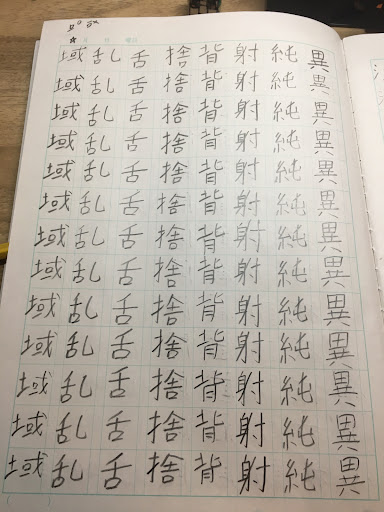 ★ 月 日 曜日
域乱舌捨背射純異
域乱舌捨背射純異
域乱舌捨背射純異
域乱舌捨背射純異
域乱舌捨背射純異
域乱舌捨背射純異
域乱舌捨背射純異
域乱舌捨背射純異
域乱舌捨背射純異
域乱舌捨背射純異
域乱舌捨背射純異
域乱舌捨背射純異
域乱舌捨背射純異